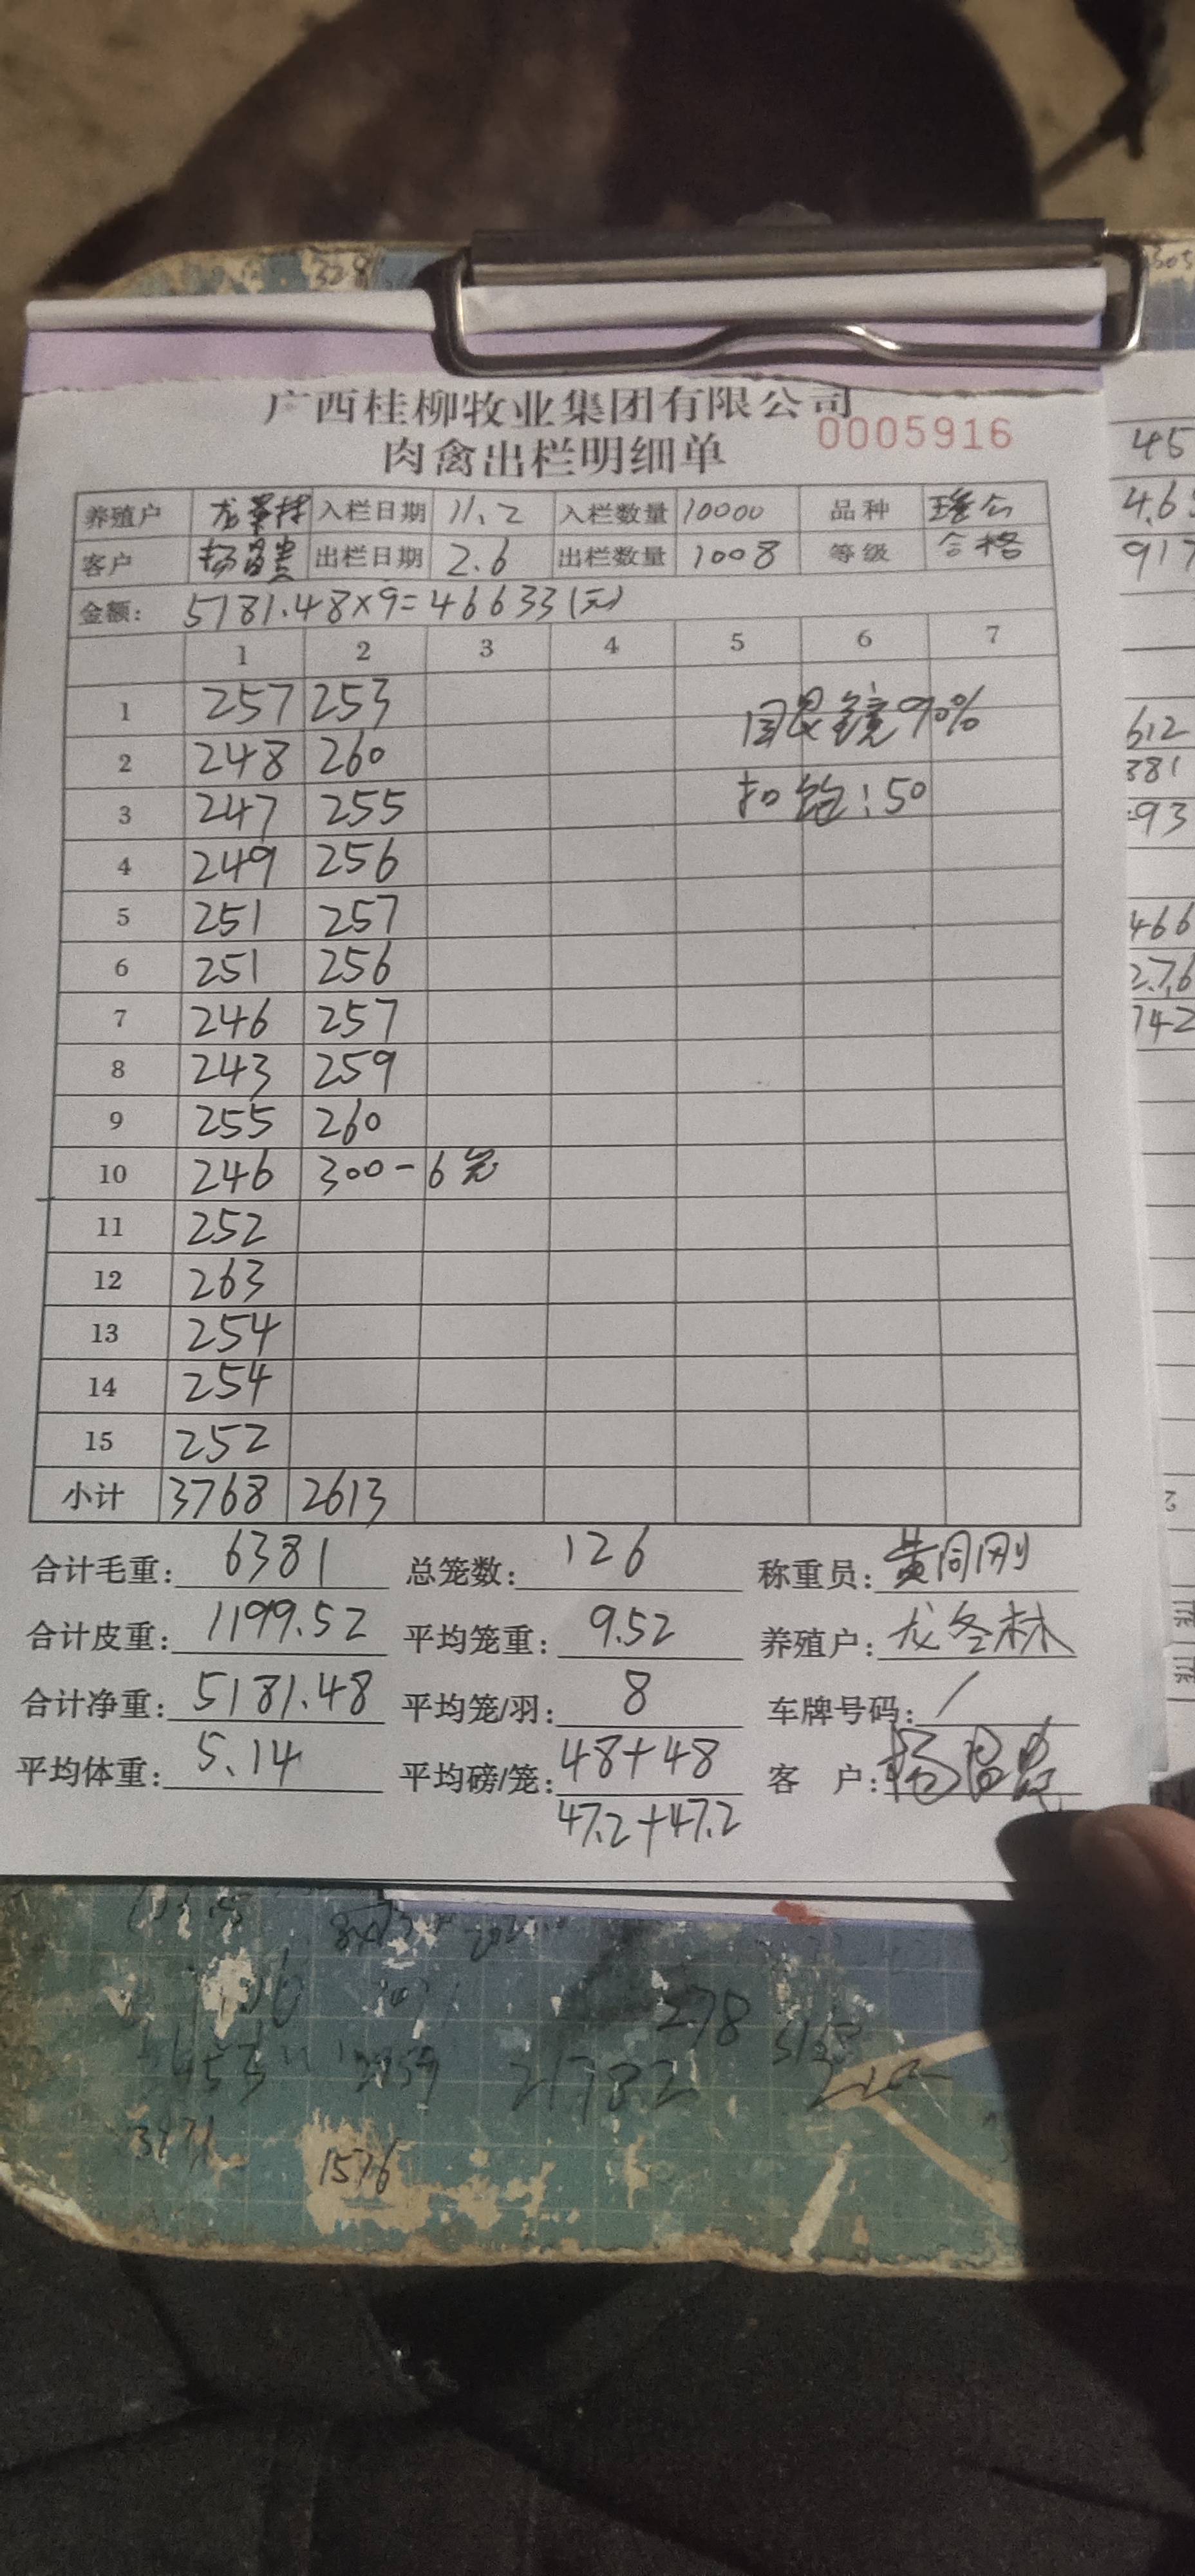 广西桂柳牧业集团有限公司
0005916
肉禽出栏明细单
养殖户 龙冬林 入栏日期 11.2 入栏数量 10000 品种 瑶公
客户 杨 出栏日期 2.6 出栏数量 1008 等级 合格
金额: 5181.48×9=46633(元)
1 2 3 4 5 6 7
1 257 253 回眼镜90%
2 248 260
3 247 255 扣饱:50
4 249 256
5 251 257
6 251 256
7 246 257
8 243 259
9 255 260
10 246 300-6笼
11 252
12 263
13 254
14 254
15 252
小计 3768 2613
合计毛重: 6381 总笼数: 126 称重员: 黄同刚
合计皮重: 1199.52 平均笼重: 9.52 养殖户: 龙冬林
合计净重: 5181.48 平均笼/羽: 8 车牌号码: /
平均体重: 5.14 平均磅/笼: 48+48 客 户: 杨
47.2+47.2
328
505
45
4.65
917
612
381
=93
466
2.76
742
278
21782
3971
1576